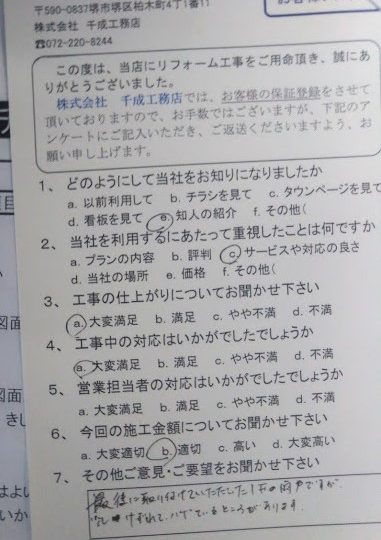 〒590-0837堺市堺区柏木町4丁1番11
株式会社 千成工務店
☎072-220-8244
この度は、当店にリフォーム工事をご用命頂き、誠にあ
りがとうございました。
株式会社 千成工務店では、お客様の保証登録をさせて
頂いておりますので、お手数ではございますが、下記のア
ンケートにご記入いただき、ご返送くださいますよう、お
願い申し上げます。
1、どのようにして当社をお知りになりましたか
a. 以前利用して b. チラシを見て c. タウンページを見て
d. 看板を見て e. 知人の紹介 f. その他(
2、当社を利用するにあたって重視したことは何ですか
a. プランの内容 b. 評判 c. サービスや対応の良さ
d. 当社の場所 e. 価格 f. その他(
3、工事の仕上がりについてお聞かせ下さい
a. 大変満足 b. 満足 c. やや不満 d. 不満
4、工事中の対応はいかがでしたでしょうか
a. 大変満足 b. 満足 c. やや不満 d. 不満
5、営業担当者の対応はいかがでしたでしょうか
a. 大変満足 b. 満足 c. やや不満 d. 不満
6、今回の施工金額についてお聞かせ下さい
a. 大変適切 b. 適切 c. 高い d. 大変高い
7、その他ご意見・ご要望をお聞かせ下さい
最後に取り付けていただいた1Fの雨戸ですが、
いるところがあります。